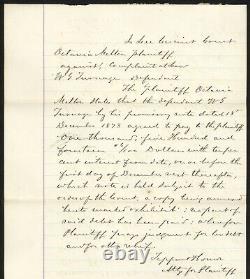 In Lee Circuit Court
Octavia Mellen Plaintiff
against } Complaint at Law
W G Turnage Defendant
The Plaintiff Octavia
Mellen States that the defendant W G
Turnage by his promissory note dated 18th
December 1878 agreed to pay to the plaintiff
One thousand five Hundred and
fourteen Dollars with ten per
cent interest from date, on or before the
first day of December next thereafter,
which note is held subject to the
order of the Court, a copy being annexed
hereto marked exhibit no part of
said debt has been paid, wherefore
Plaintiff prays judgment for her debt
and for other relief
Tappan & Hornor
Atty for Plaintiff